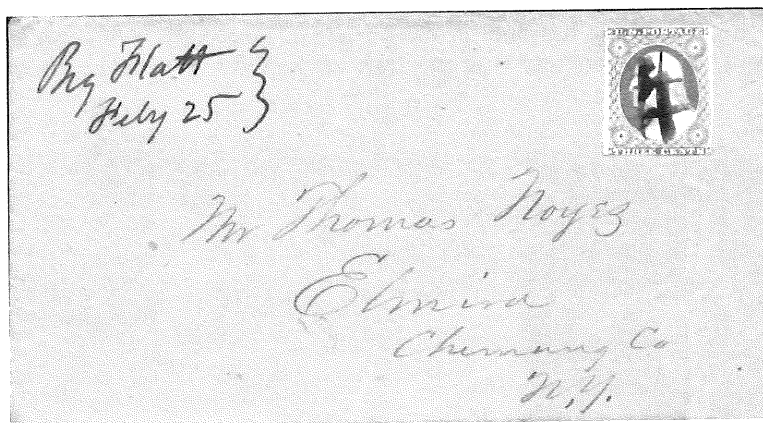 Big Flatt
Feby 25
U.S. POSTAGE
THREE CENTS
Mr Thomas Noyes
Elmira
Chemung Co
N.Y.